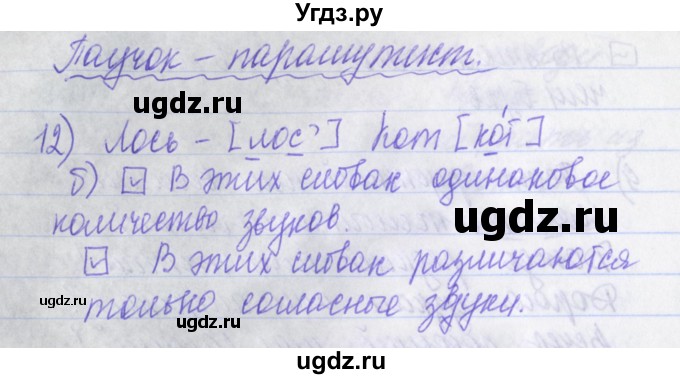 Угдз.ру
Паучок – парашутист.
ugdz.ru
ugdz.ru
12) Лось – [лос'] кот [кот]
б) ☑ В этих словах одинаковое
количество звуков.
ugdz.ru
ugdz.ru
☑ В этих словах различаются
ugdz.ru
только согласные звуки.
ugdz.ru
ugdz.ru